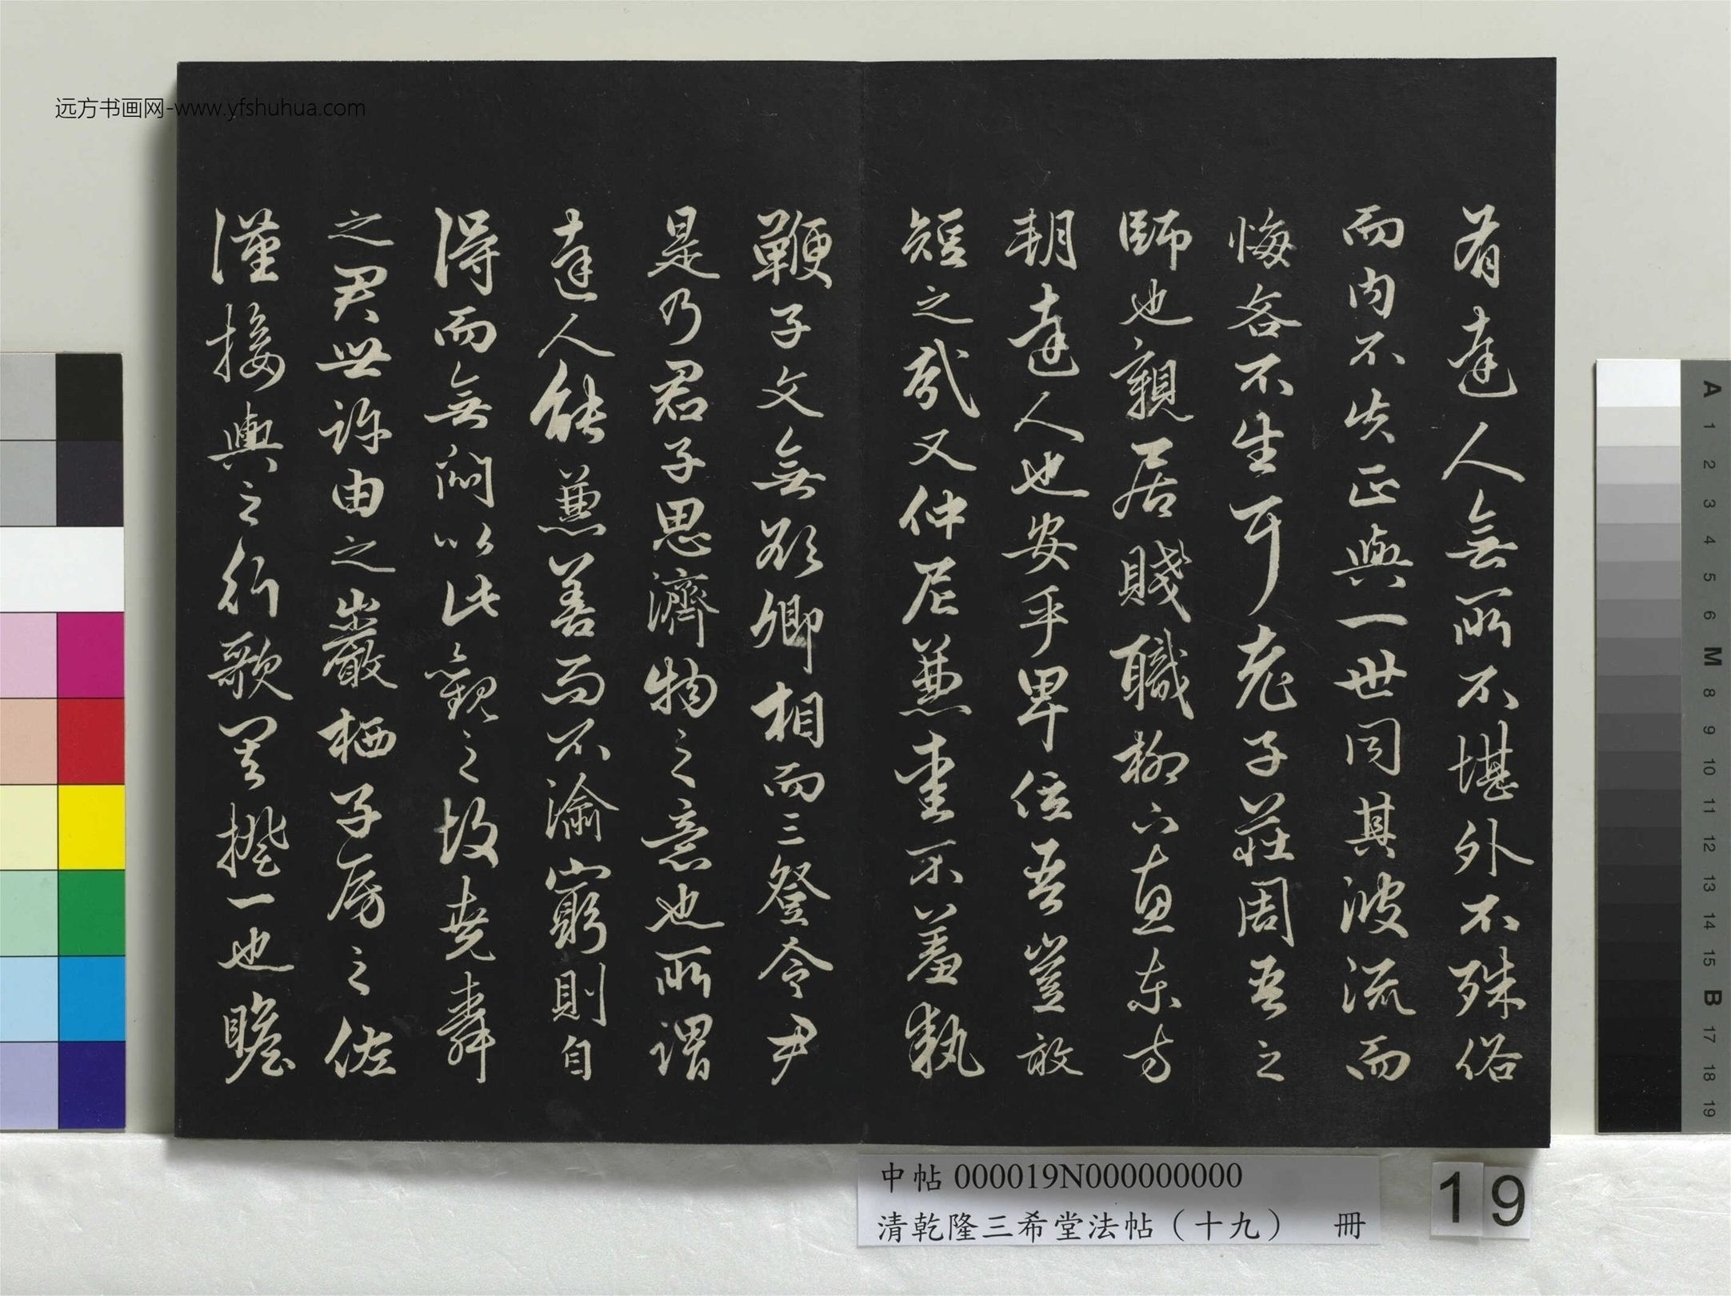 远方书画网-www.yfshuhua.com
有達人無所不堪外不殊俗
而内不失正與一世同其波流而
悔吝不生耳老子莊周吾之
師也親居賤職柳下惠東方
朝達人也安乎卑位吾豈敢
短之哉又仲尼兼愛不羞執
鞭子文無欲卿相而三登令尹
是乃君子思濟物之意也所謂
達人能兼善而不渝窮則自
得而無悶以此觀之故堯舜
之君世許由之巖栖子房之佐
漢接輿之行歌其揆一也瞻
中帖 000019N000000000
清乾隆三希堂法帖（十九） 冊
19
A
1
2
3
4
5
6
M
8
9
10
11
12
13
14
15
B
17
18
19